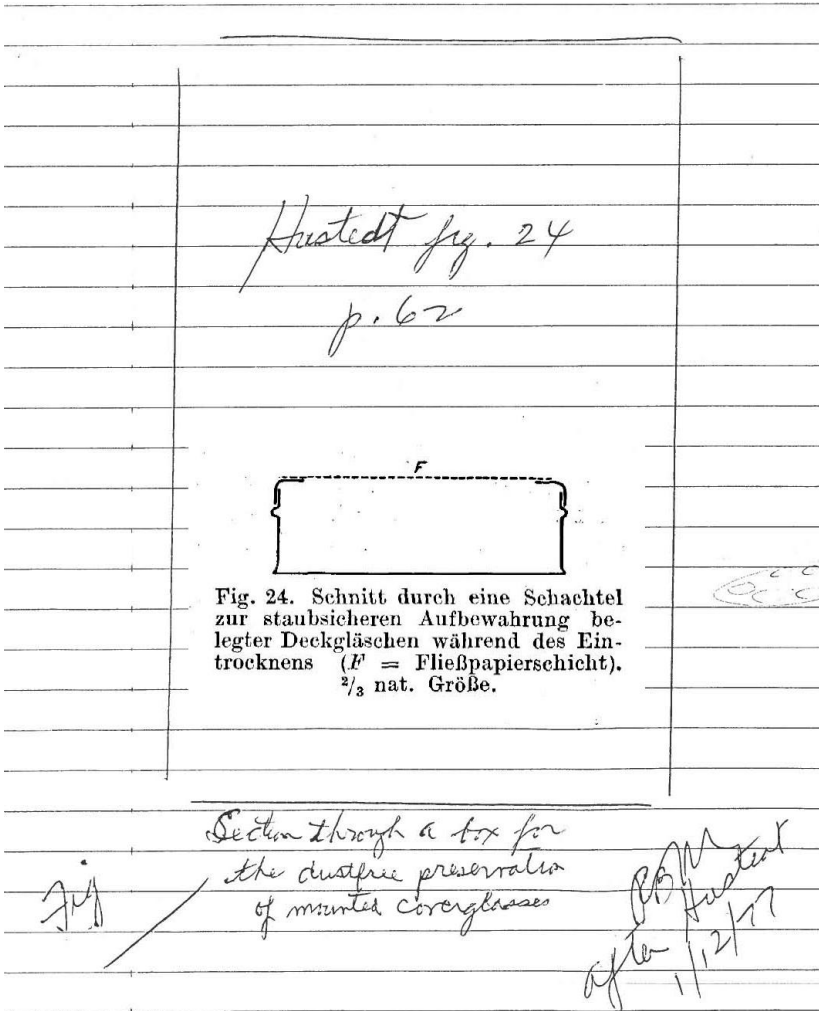 Hustedt fig. 24
p. 62
F
Fig. 24. Schnitt durch eine Schachtel
zur staubsicheren Aufbewahrung be-
legter Deckgläschen während des Ein-
trocknens (F = Fließpapierschicht).
²/₃ nat. Größe.
Section through a box for
the dustfree preservation
of mounted coverglasses
Fig
after Hustedt
1/12/77